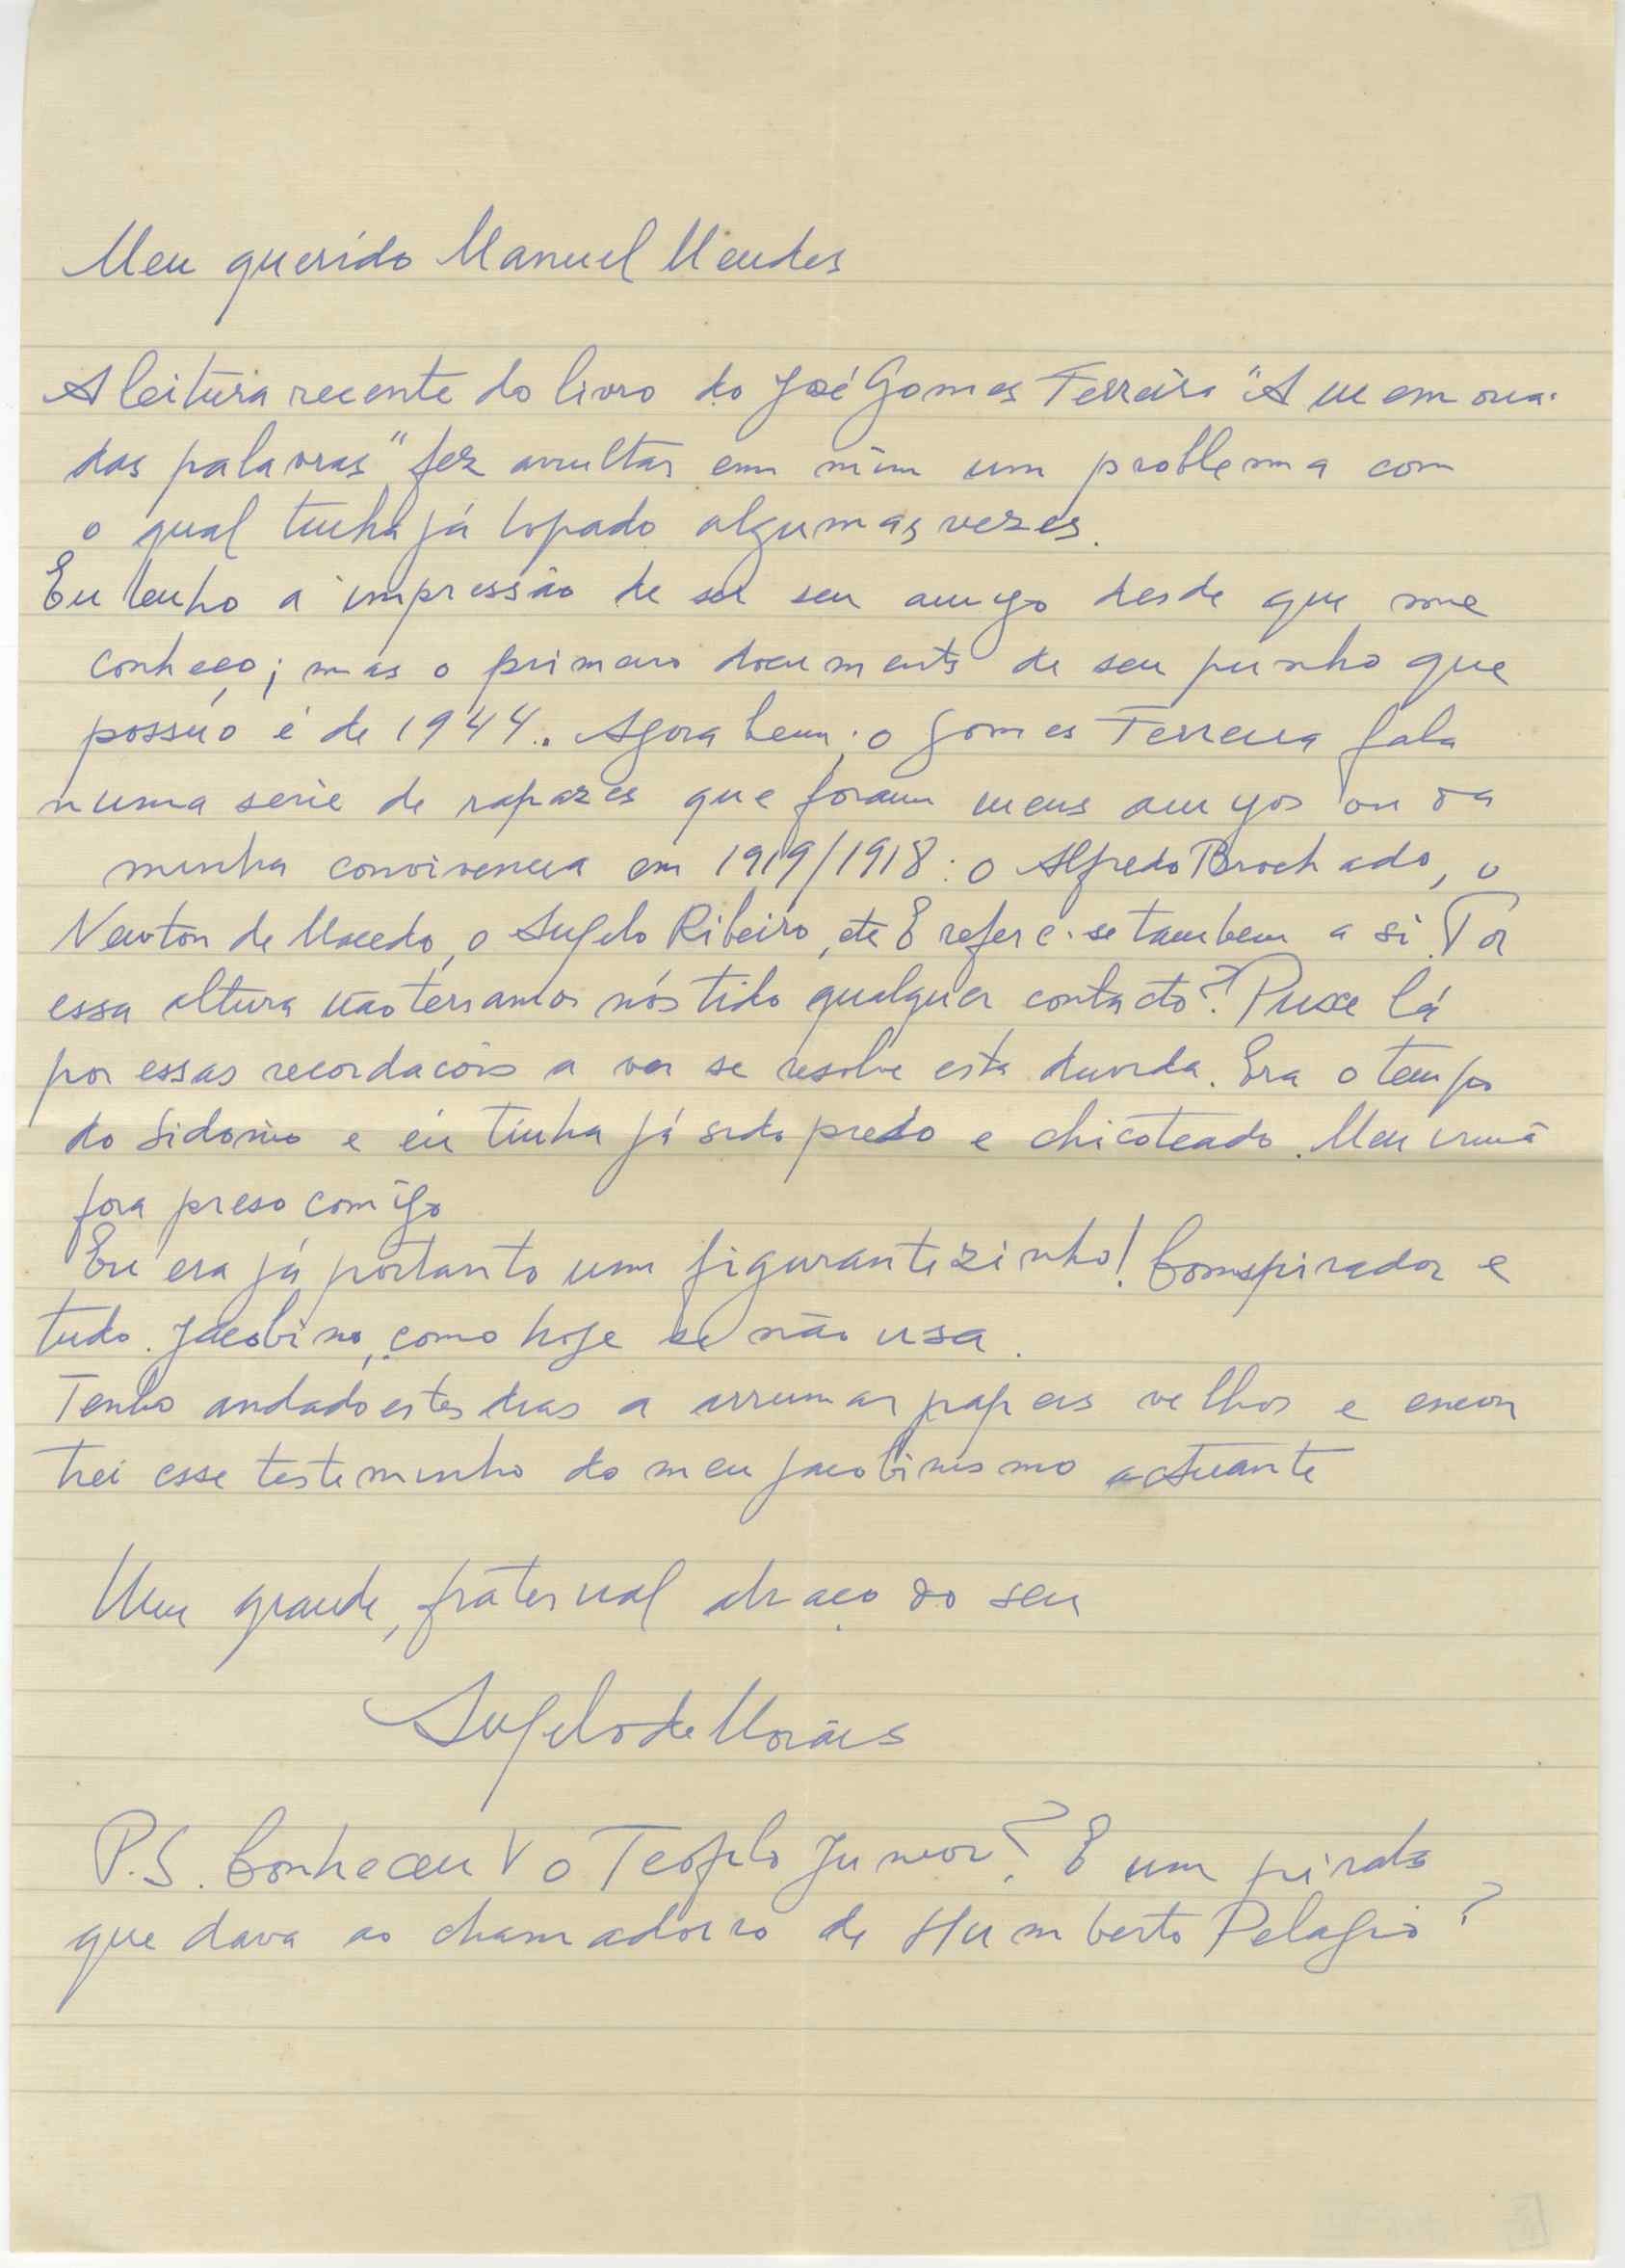 Meu querido Manuel Mendes
A leitura recente do livro do José Gomes Ferreira "A memoria
das palavras" fez avultar em mim um problema com
o qual tinha já topado algumas vezes.
Eu tenho a impressão de ser seu amigo desde que me
conheço; mas o primeiro documento de seu punho que
possuo é de 1944.. Agora bem: o Gomes Ferreira fala
numa serie de rapazes que foram meus amigos ou da
minha convivencia em 1919/1918: o Alfredo Brochado, o
Newton de Macedo, o Angelo Ribeiro, etc E refere-se tambem a si. Por
essa altura não teriamos nós tido qualquer contacto? Puxe lá
por essas recordações a ver se resolve esta duvida. Era o tempo
do Sidonio e eu tinha já sido preso e chicoteado. Meu irmão
fora preso comigo
Eu era já portanto um figurantezinho! Conspirador e
tudo. Jacobino, como hoje se não usa.
Tenho andado estes dias a arrumar papeis velhos e encon
trei esse testemunho do meu jacobinismo actuante
Um grande, fraternal abraço do seu
Angelo de Morais
P.S. Conheceu V o Teofilo Junior? E um pirata
que dava ao chamadoiro de Humberto Pelagio?